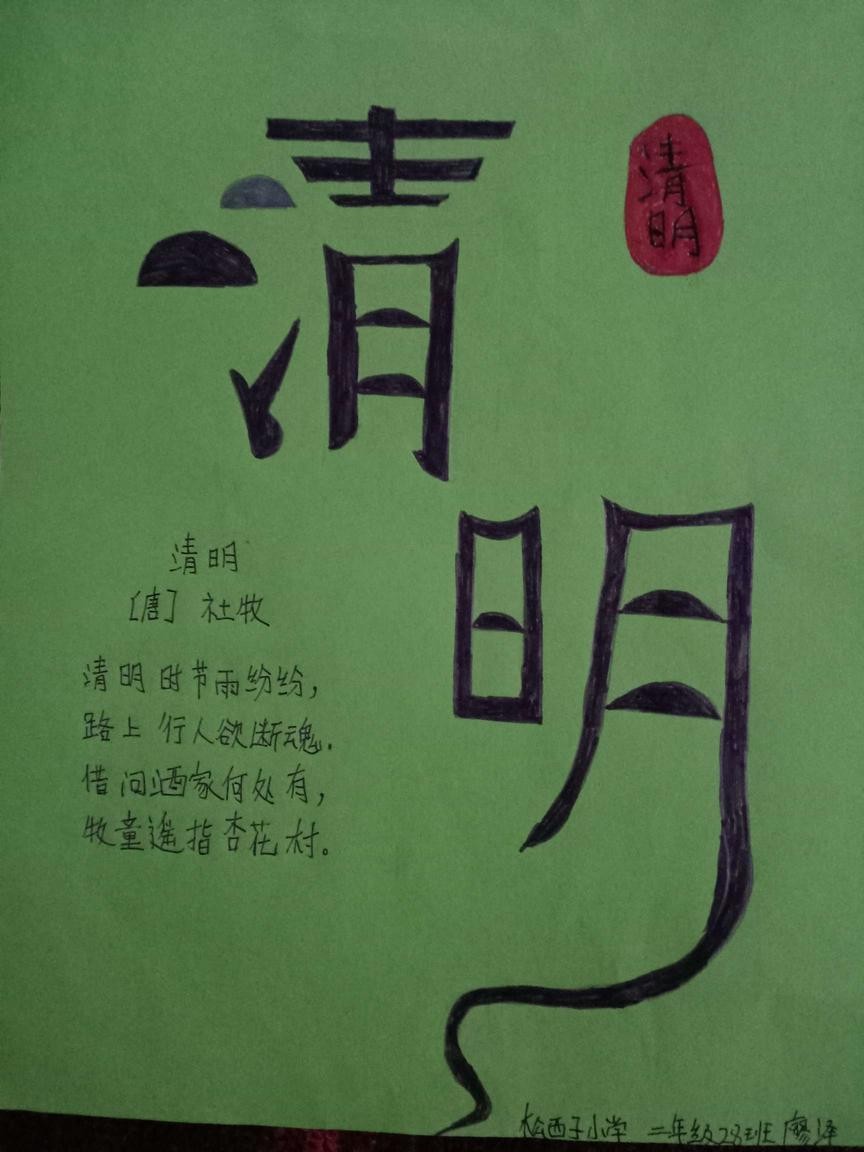 清
明
清
明
清明
[唐] 社牧
清明时节雨纷纷，
路上行人欲断魂.
借问酒家何处有，
牧童遥指杏花村。
松西子小学 二年级28班 廖泽